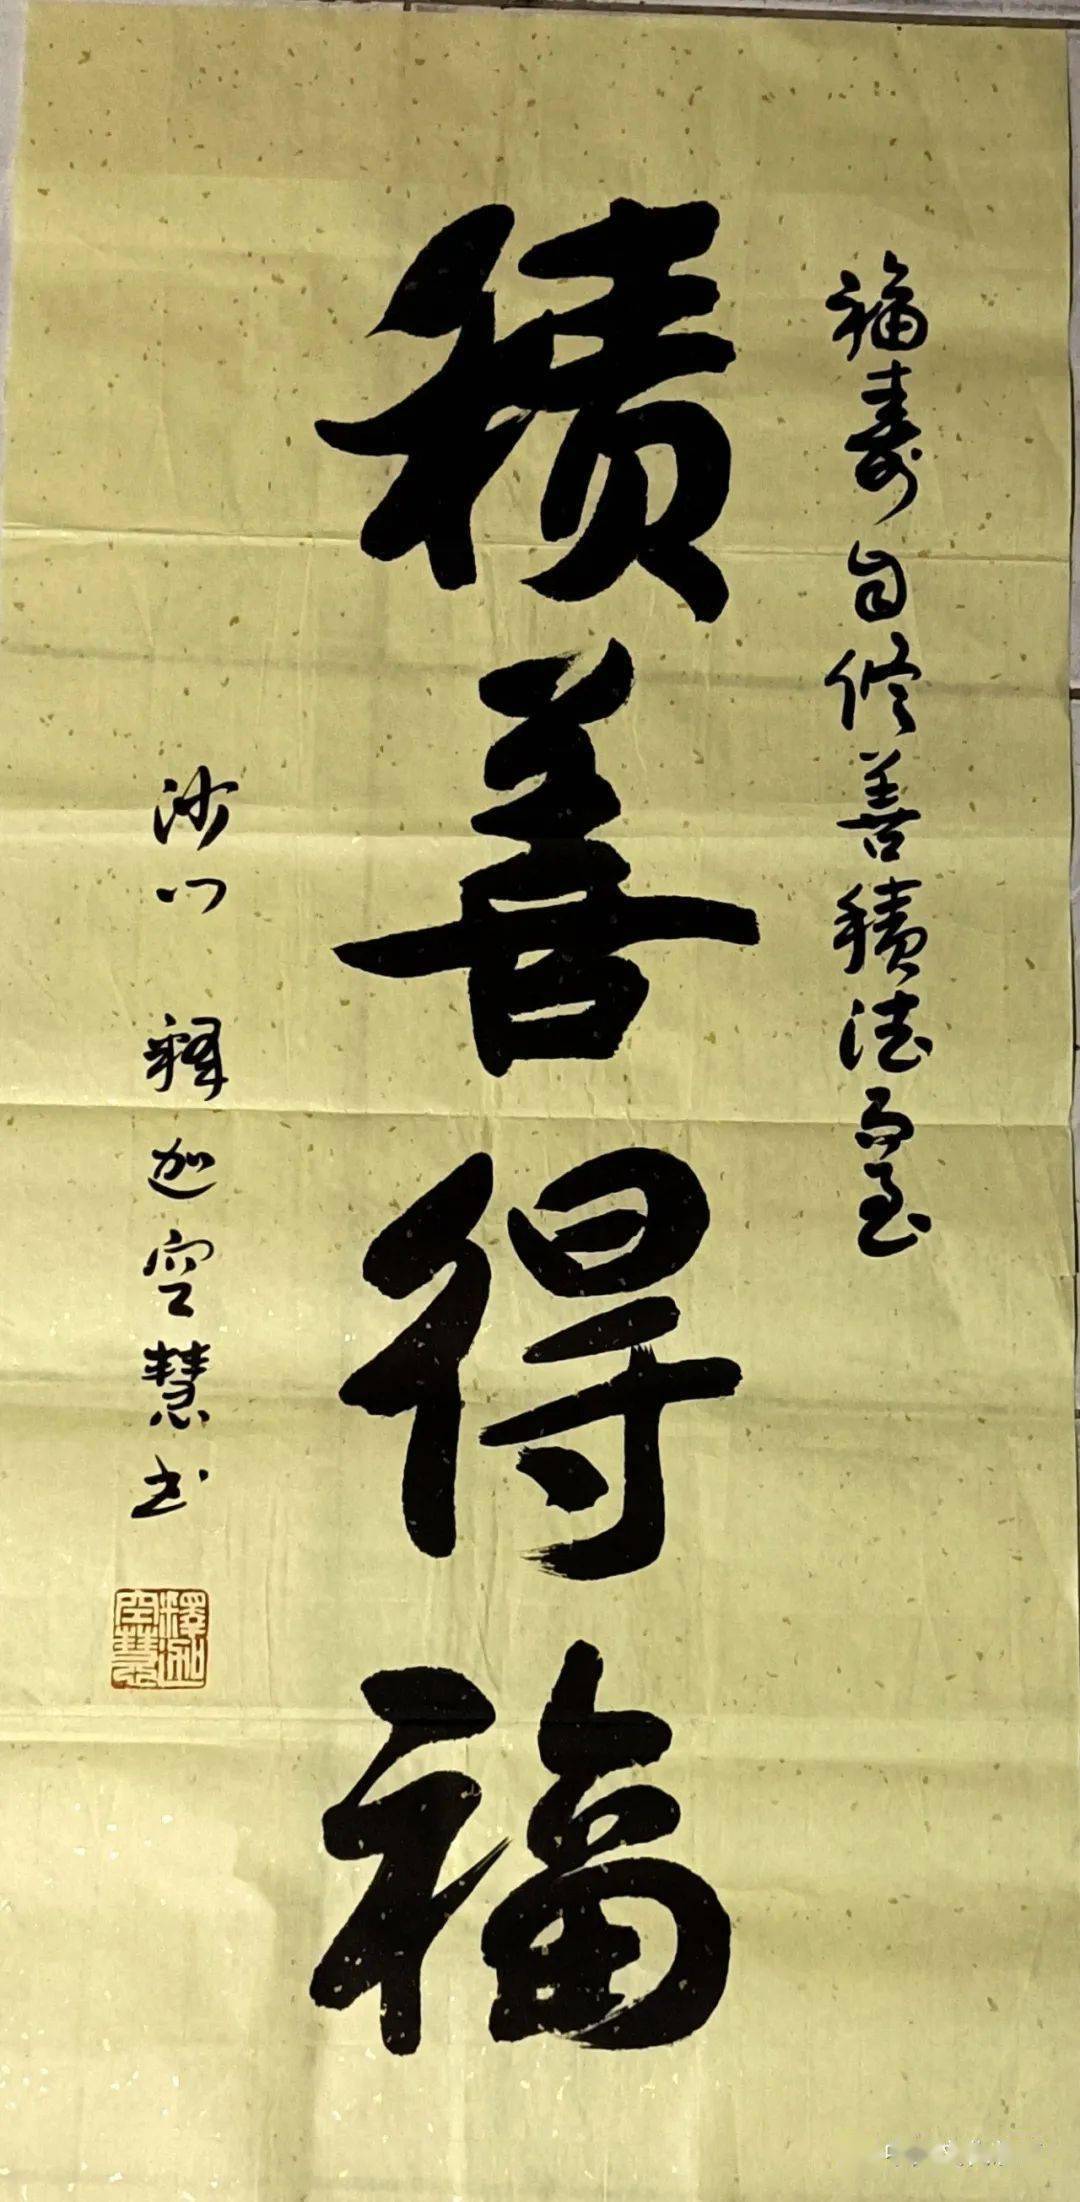 福寿自修善積德而至
積善得福
沙门 释迦空慧书
釋迦空慧